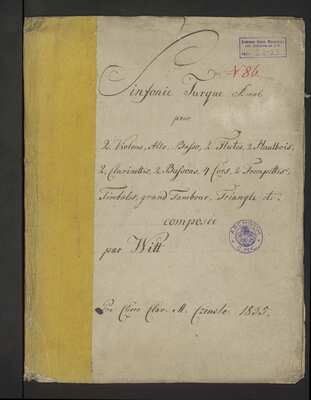 N 86.
Sinfonie Turque A mol
pour
2 Violons, Alto, Basso, 2 Flutes, 2 Hautbois,
2 Clarinettes, 2 Bassons, 4 Cors, 2 Trompettes,
Timbales, grand Tambour, Triangle &c.
composée
par Witt
Pro Choro Clar. M. 1835.